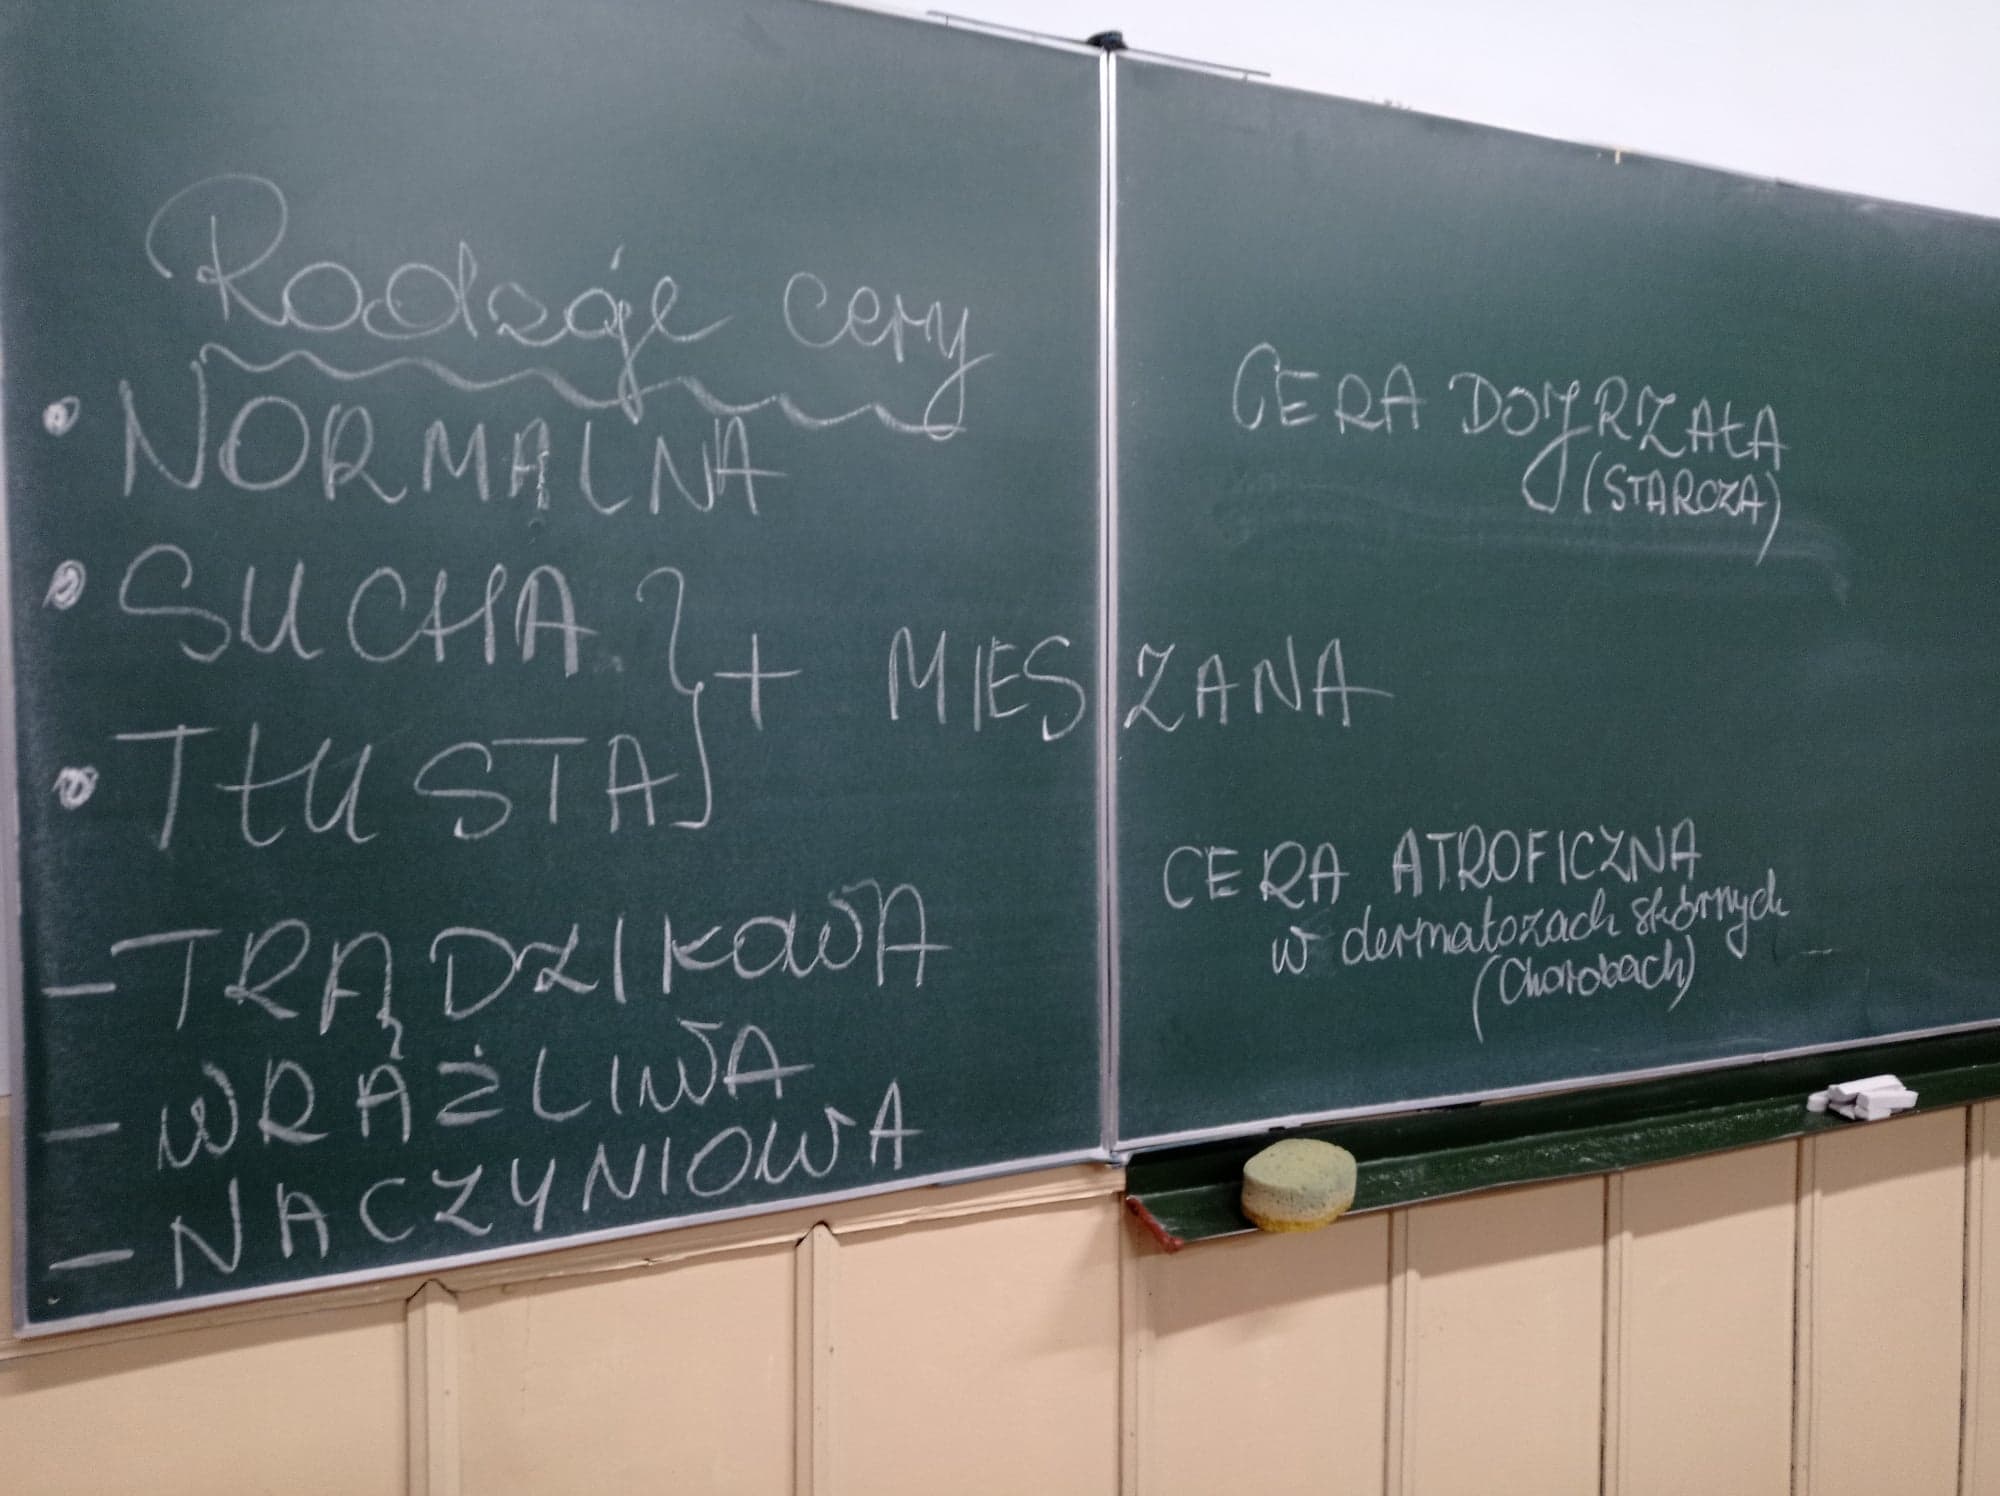 Rodzaje cery
• NORMALNA
• SUCHA } + MIESZANA
• TŁUSTA
- TRĄDZIKOWA
- WRAŻLIWA
- NACZYNIOWA
CERA DOJRZAŁA
(STARCZA)
CERA ATROFICZNA
w dermatozach skórnych
(Chorobach)